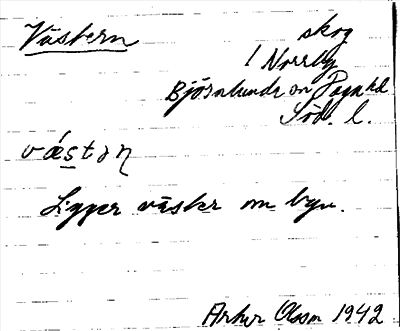 Västern
skog
i Norrby
Björnlunda sn Daga hd
Söd. l.
vǽstəɳ
Ligger väster om byn.
Arthur Olsson 1942